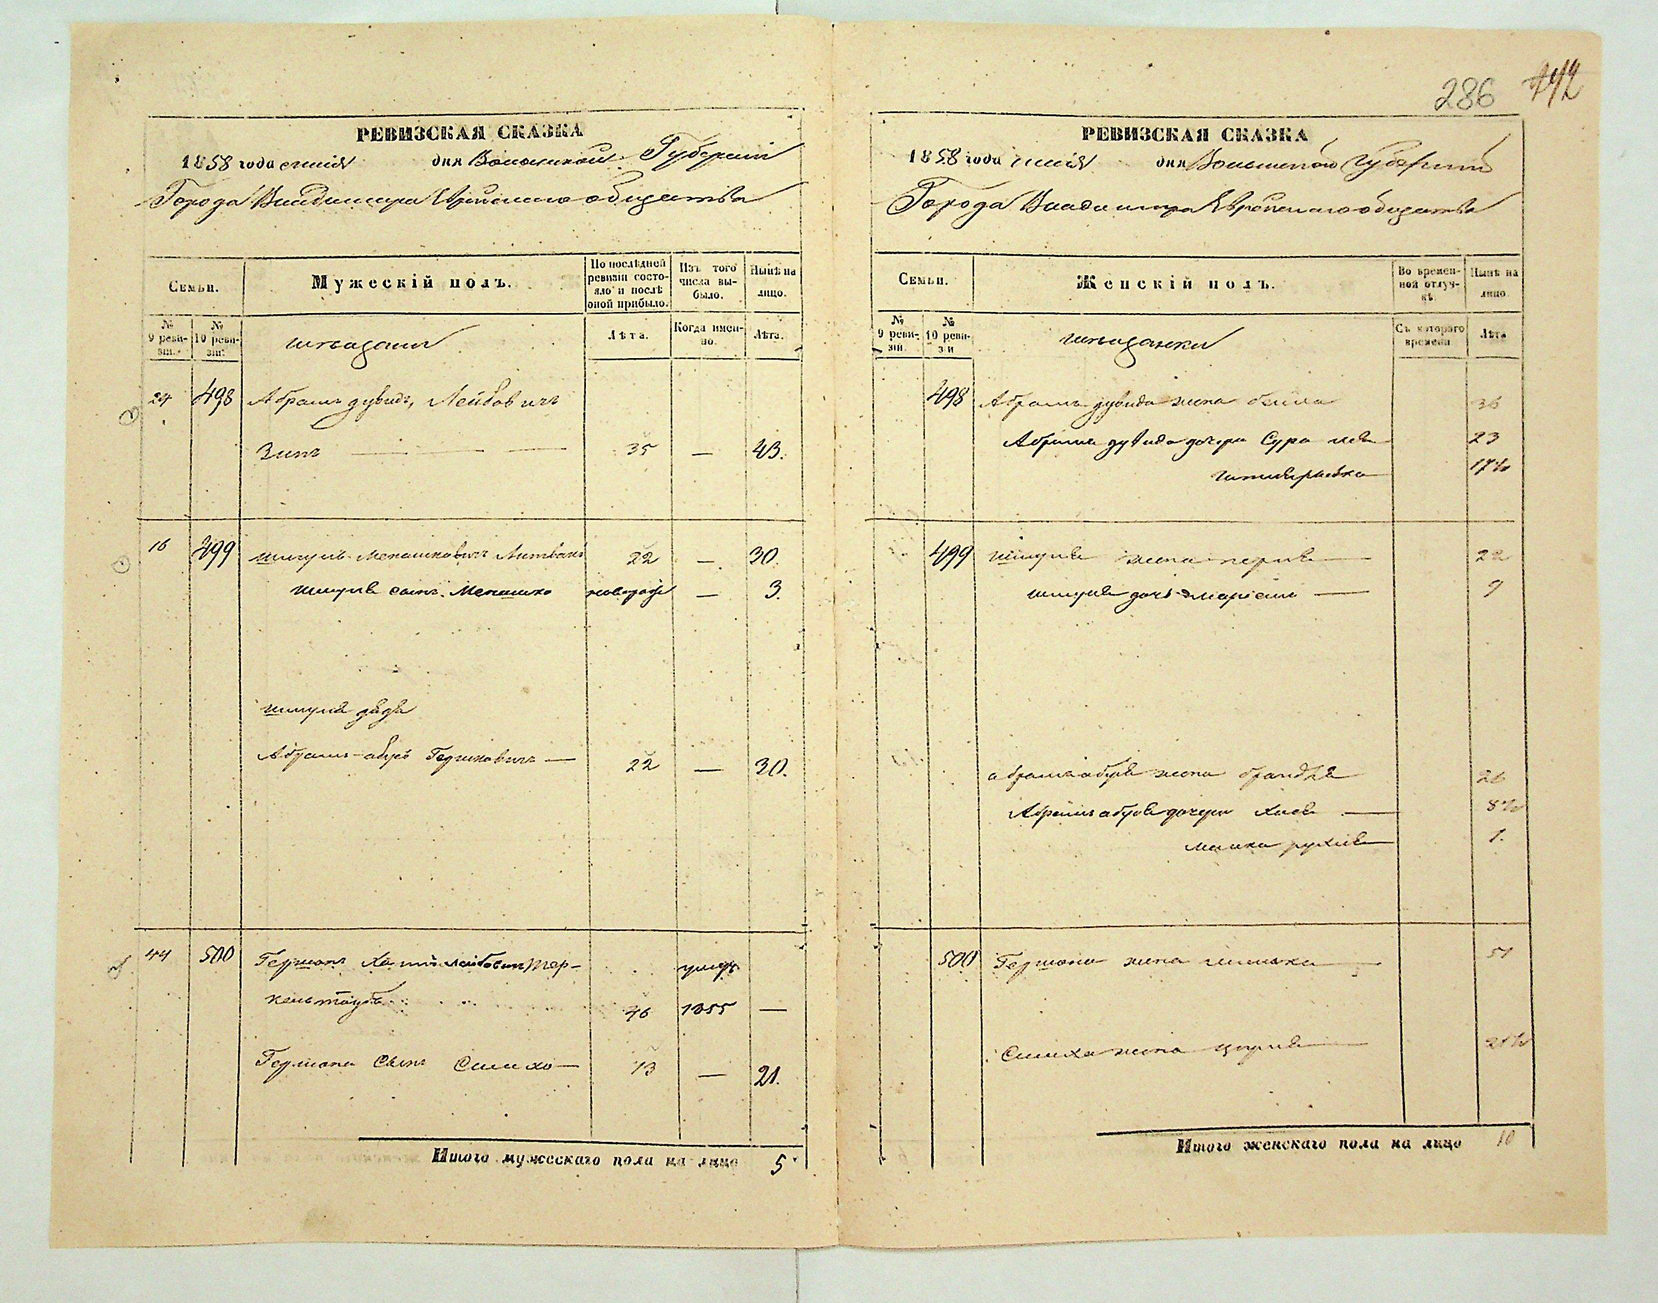 286 442
РЕВИЗСКАЯ СКАЗКА
1858 года июня дня Волынской Губернiи
Города Владимира Еврейского общества
Семьи.
Мужескiй полъ.
По послѣдней ревизiи состояло и послѣ оной прибыло.
Изъ того числа выбыло.
Нынѣ на лицо.
№ 9 ревизiи.
№ 10 ревизiи.
мѣщане
Лѣта.
Когда именно.
Лѣта.
24 498 Абрамъ дувидъ Лейбовичъ
Зипъ 35 — 43.
16 499 Шмуль Менашковичъ Литвакъ 22 — 30.
Шмуля сынъ Менашко новорож — 3.
Шмуля дядя
Абрамъ-абусъ Гершковичъ — 22 — 30.
44 500 Гершонъ Лейбовичъ умеръ
46 1855 —
Гершона Сынъ Симхо — 13 — 21.
Итого мужескаго пола на лицо 5
РЕВИЗСКАЯ СКАЗКА
1858 года июня дня Волынской губернiи
Города Владимира Еврейского общества
Семьи.
Женскiй полъ.
Во временной отлучкѣ.
Нынѣ на лицо.
№ 9 ревизiи.
№ 10 ревизiи
мѣщанки
Съ котораго времени
Лѣта
498 Абрамъ дувида жена бейла 36
Абрамъ дувида дочери Сура лея 23
ривка 17½
499 Шмуля жена перля — 22
Шмуля дочь Марiем — 9
абрамъ абуся жена брандля 26
Абрамъ абуся дочери Хая — 8½
малка рухля 1.
500 Гершона жена — 51
Симха жена ципра — 21½
Итого женскаго пола на лицо 10